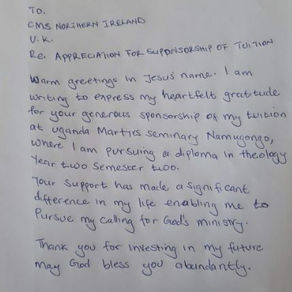 TO.
CMS NORTHERN IRELAND
U.K.
Re. APPRECIATION FOR SUPONSORSHIP OF TUITION
Warm greetings in Jesus' name. I am
writing to express my heartfelt gratitude
for your generous sponsorship of my tuition
at Uganda Martyrs seminary Namugongo,
where I am pursuing a diploma in theology
Year two Semester two.
Your support has made a significant
difference in my life enabling me to
Pursue my calling for God's ministry.
Thank you for investing in my future
may God bless you abundantly.